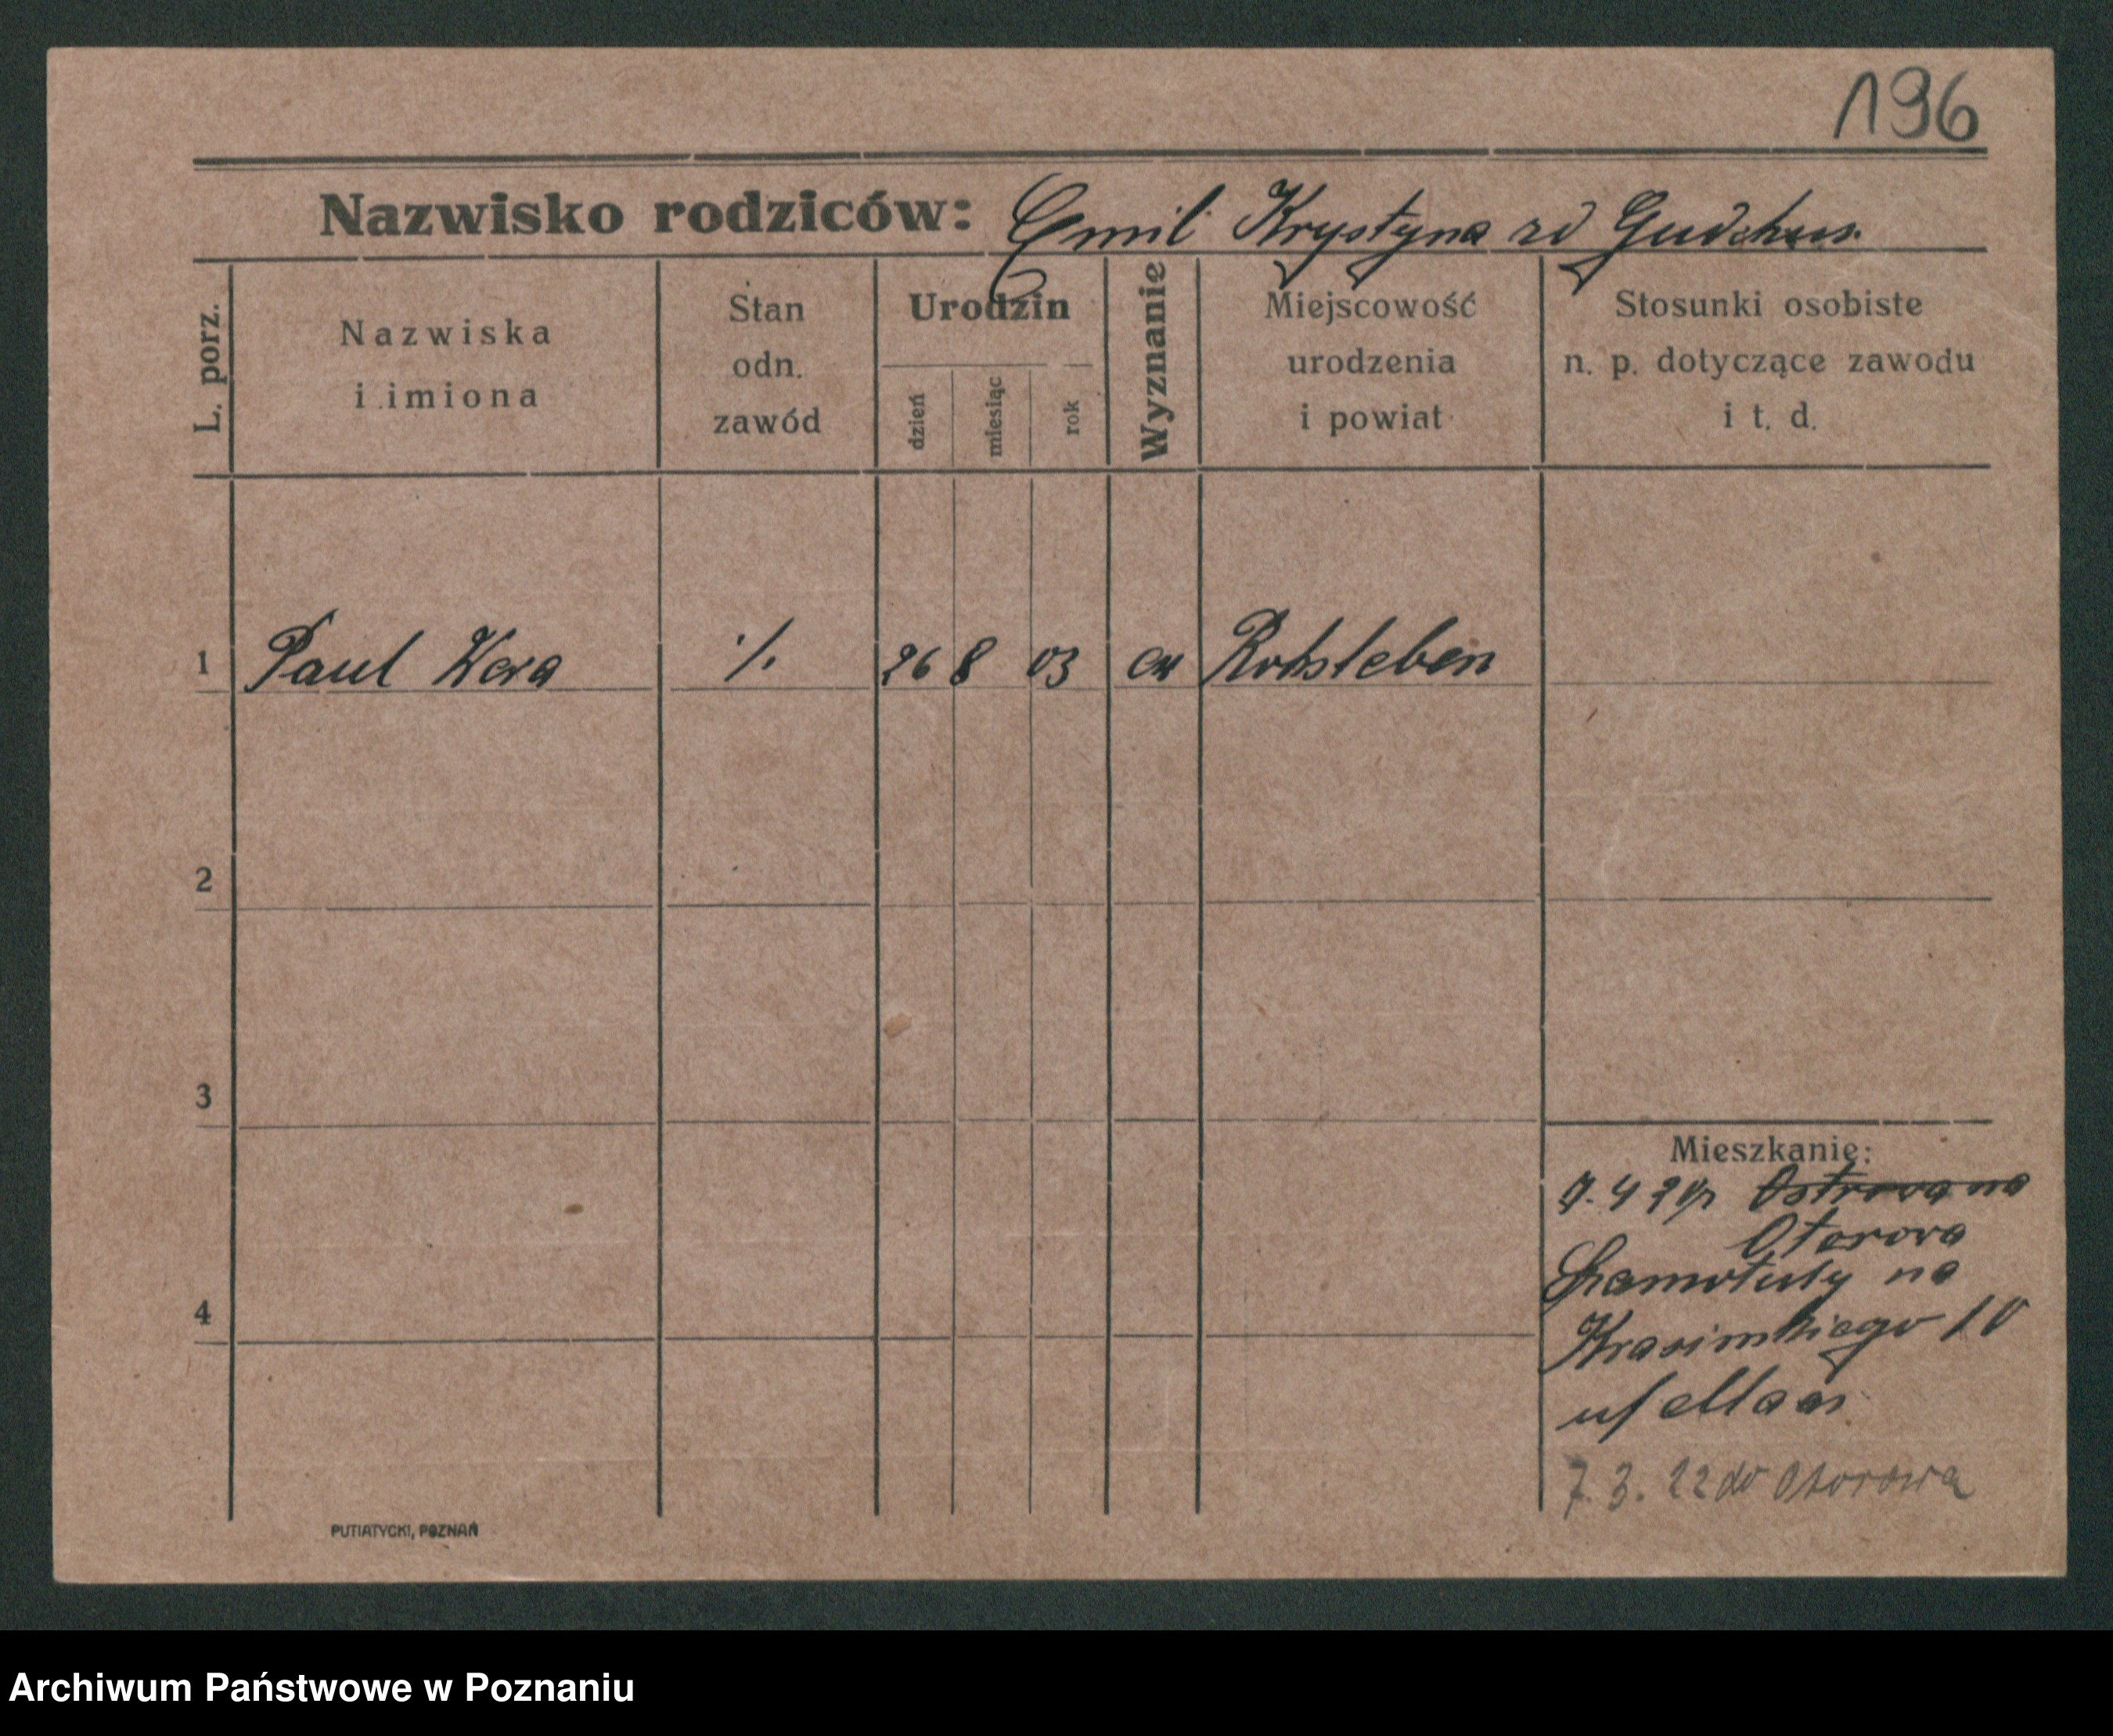 196
Nazwisko rodziców: Emil Krystyna zd
L. porz.
Nazwiska
i imiona
Stan
odn.
zawód
Urodzin
dzień
miesiąc
rok
Wyznanie
Miejscowość
urodzenia
i powiat
Stosunki osobiste
n. p. dotyczące zawodu
i t. d.
1 Paul Wera ./. 26 8 03 ew
2
3
4
Mieszkanie:
7. 4
Otorova
Szamotuly na
10
7. 3. 22 do Otorowa
PUTIATYCKI, POZNAŃ
Archiwum Państwowe w Poznaniu